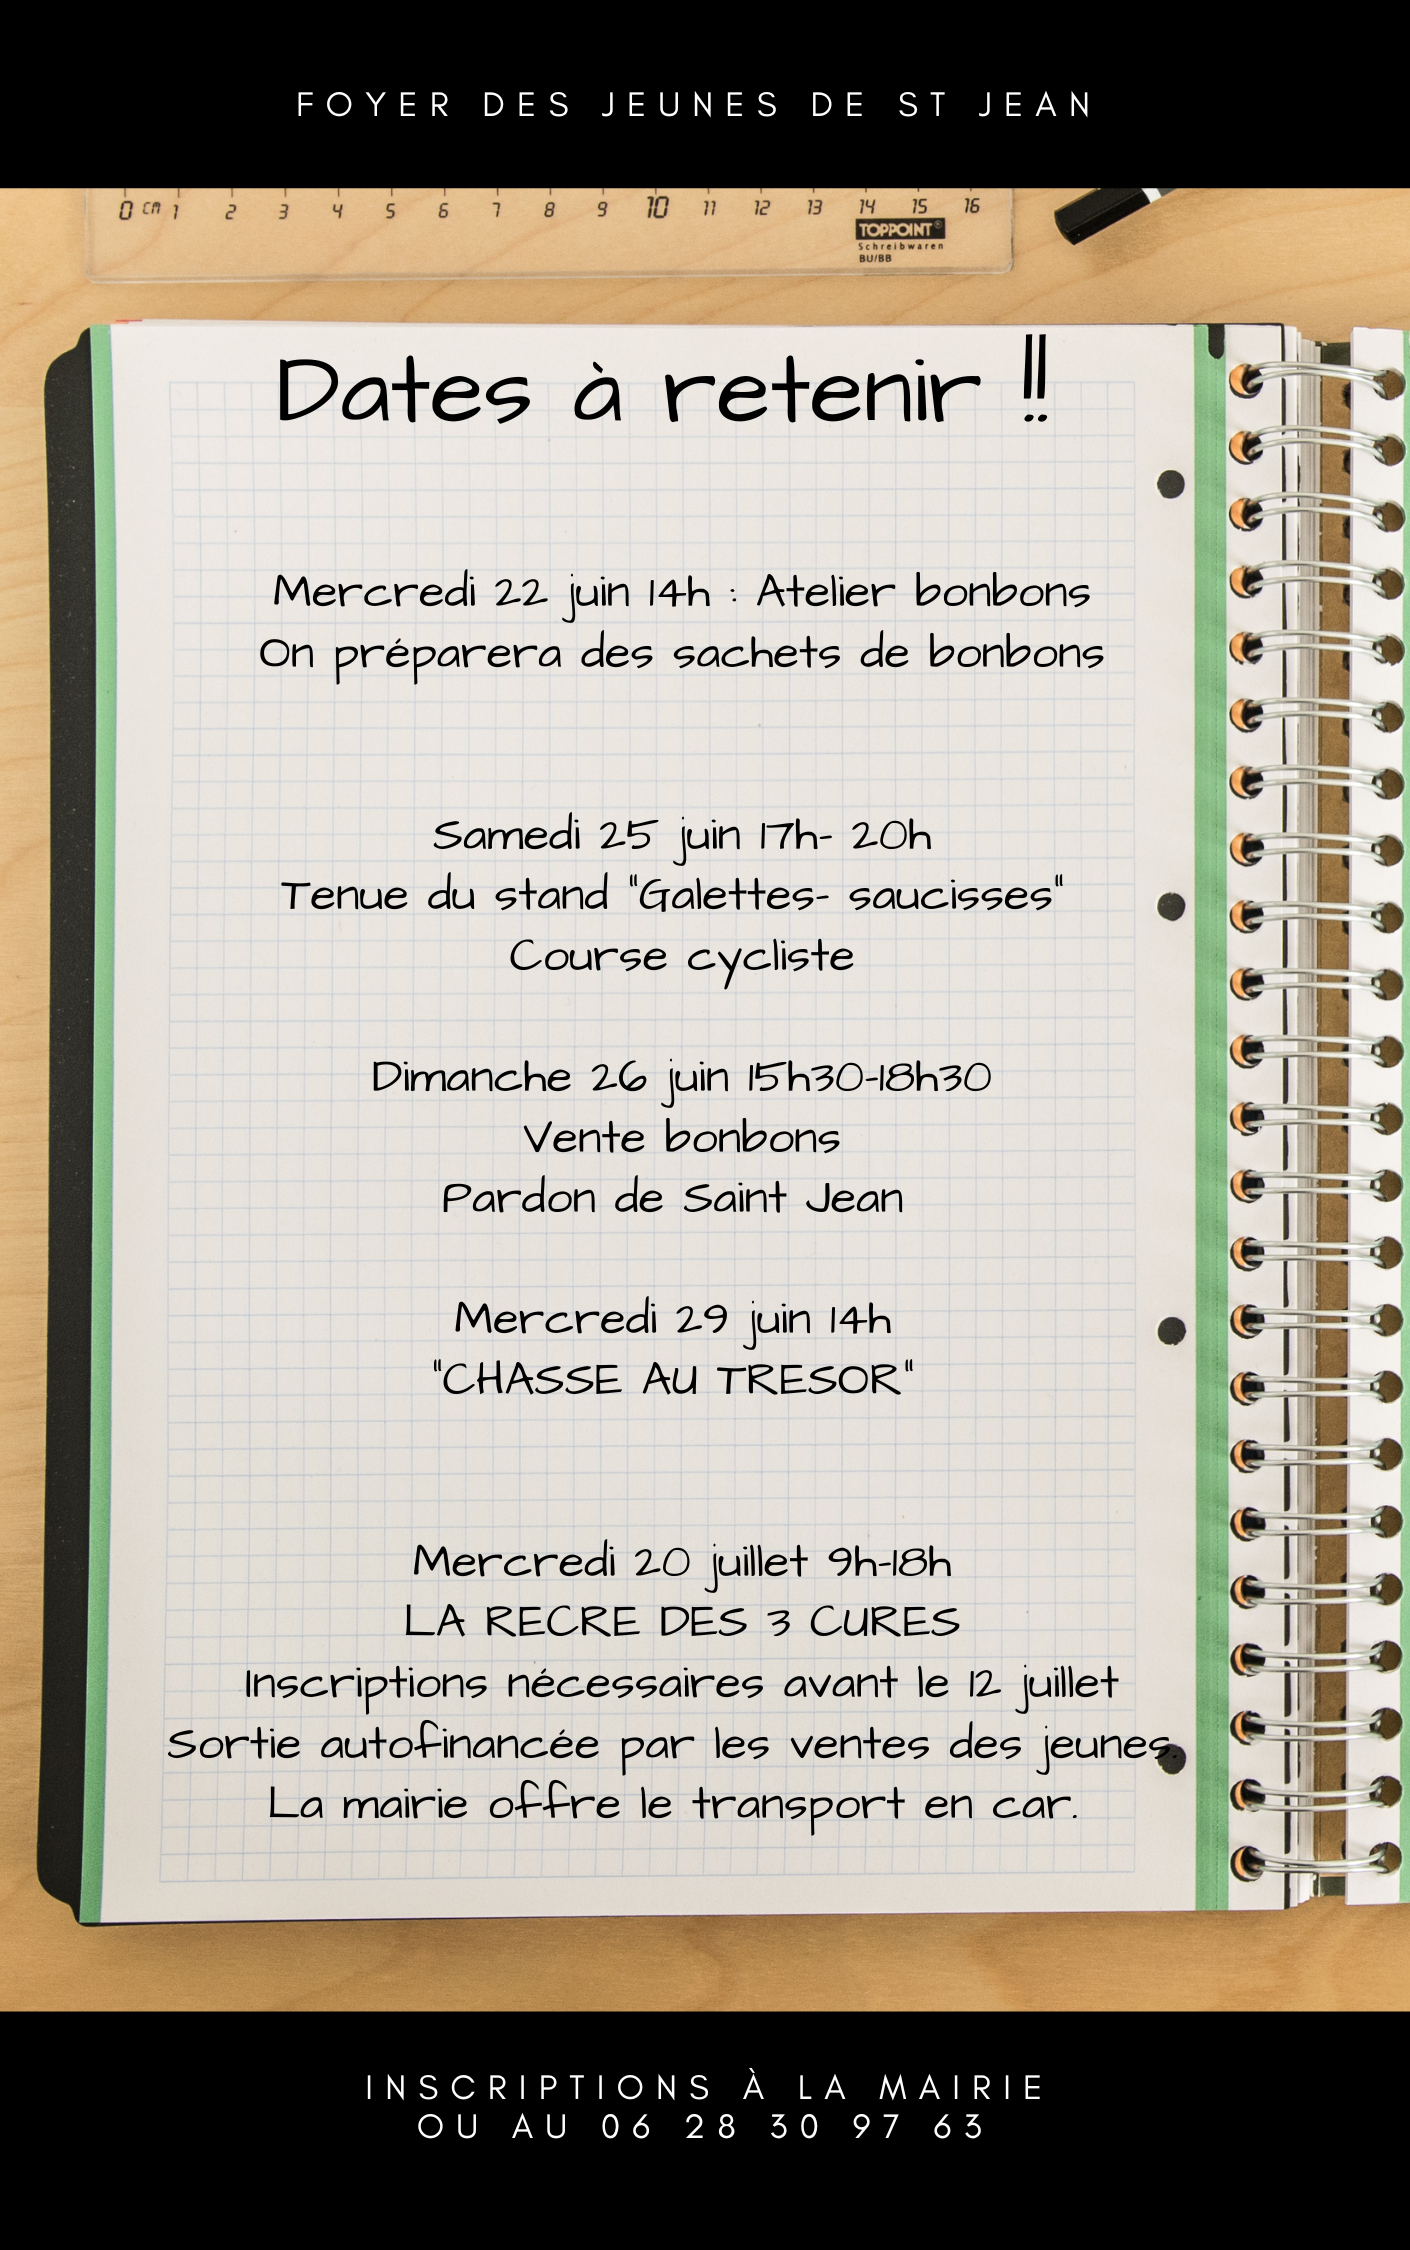 FOYER DES JEUNES DE ST JEAN
0 cm 1 2 3 4 5 6 7 8 9 10 11 12 13 14 15 16
TOPPOINT®
Schreibwaren
BU/BB
Dates à retenir !!
Mercredi 22 juin 14h : Atelier bonbons
On préparera des sachets de bonbons
Samedi 25 juin 17h- 20h
Tenue du stand "Galettes- saucisses"
Course cycliste
Dimanche 26 juin 15h30-18h30
Vente bonbons
Pardon de Saint Jean
Mercredi 29 juin 14h
"CHASSE AU TRESOR"
Mercredi 20 juillet 9h-18h
LA RECRE DES 3 CURES
Inscriptions nécessaires avant le 12 juillet
Sortie autofinancée par les ventes des jeunes.
La mairie offre le transport en car.
INSCRIPTIONS À LA MAIRIE
OU AU 06 28 30 97 63